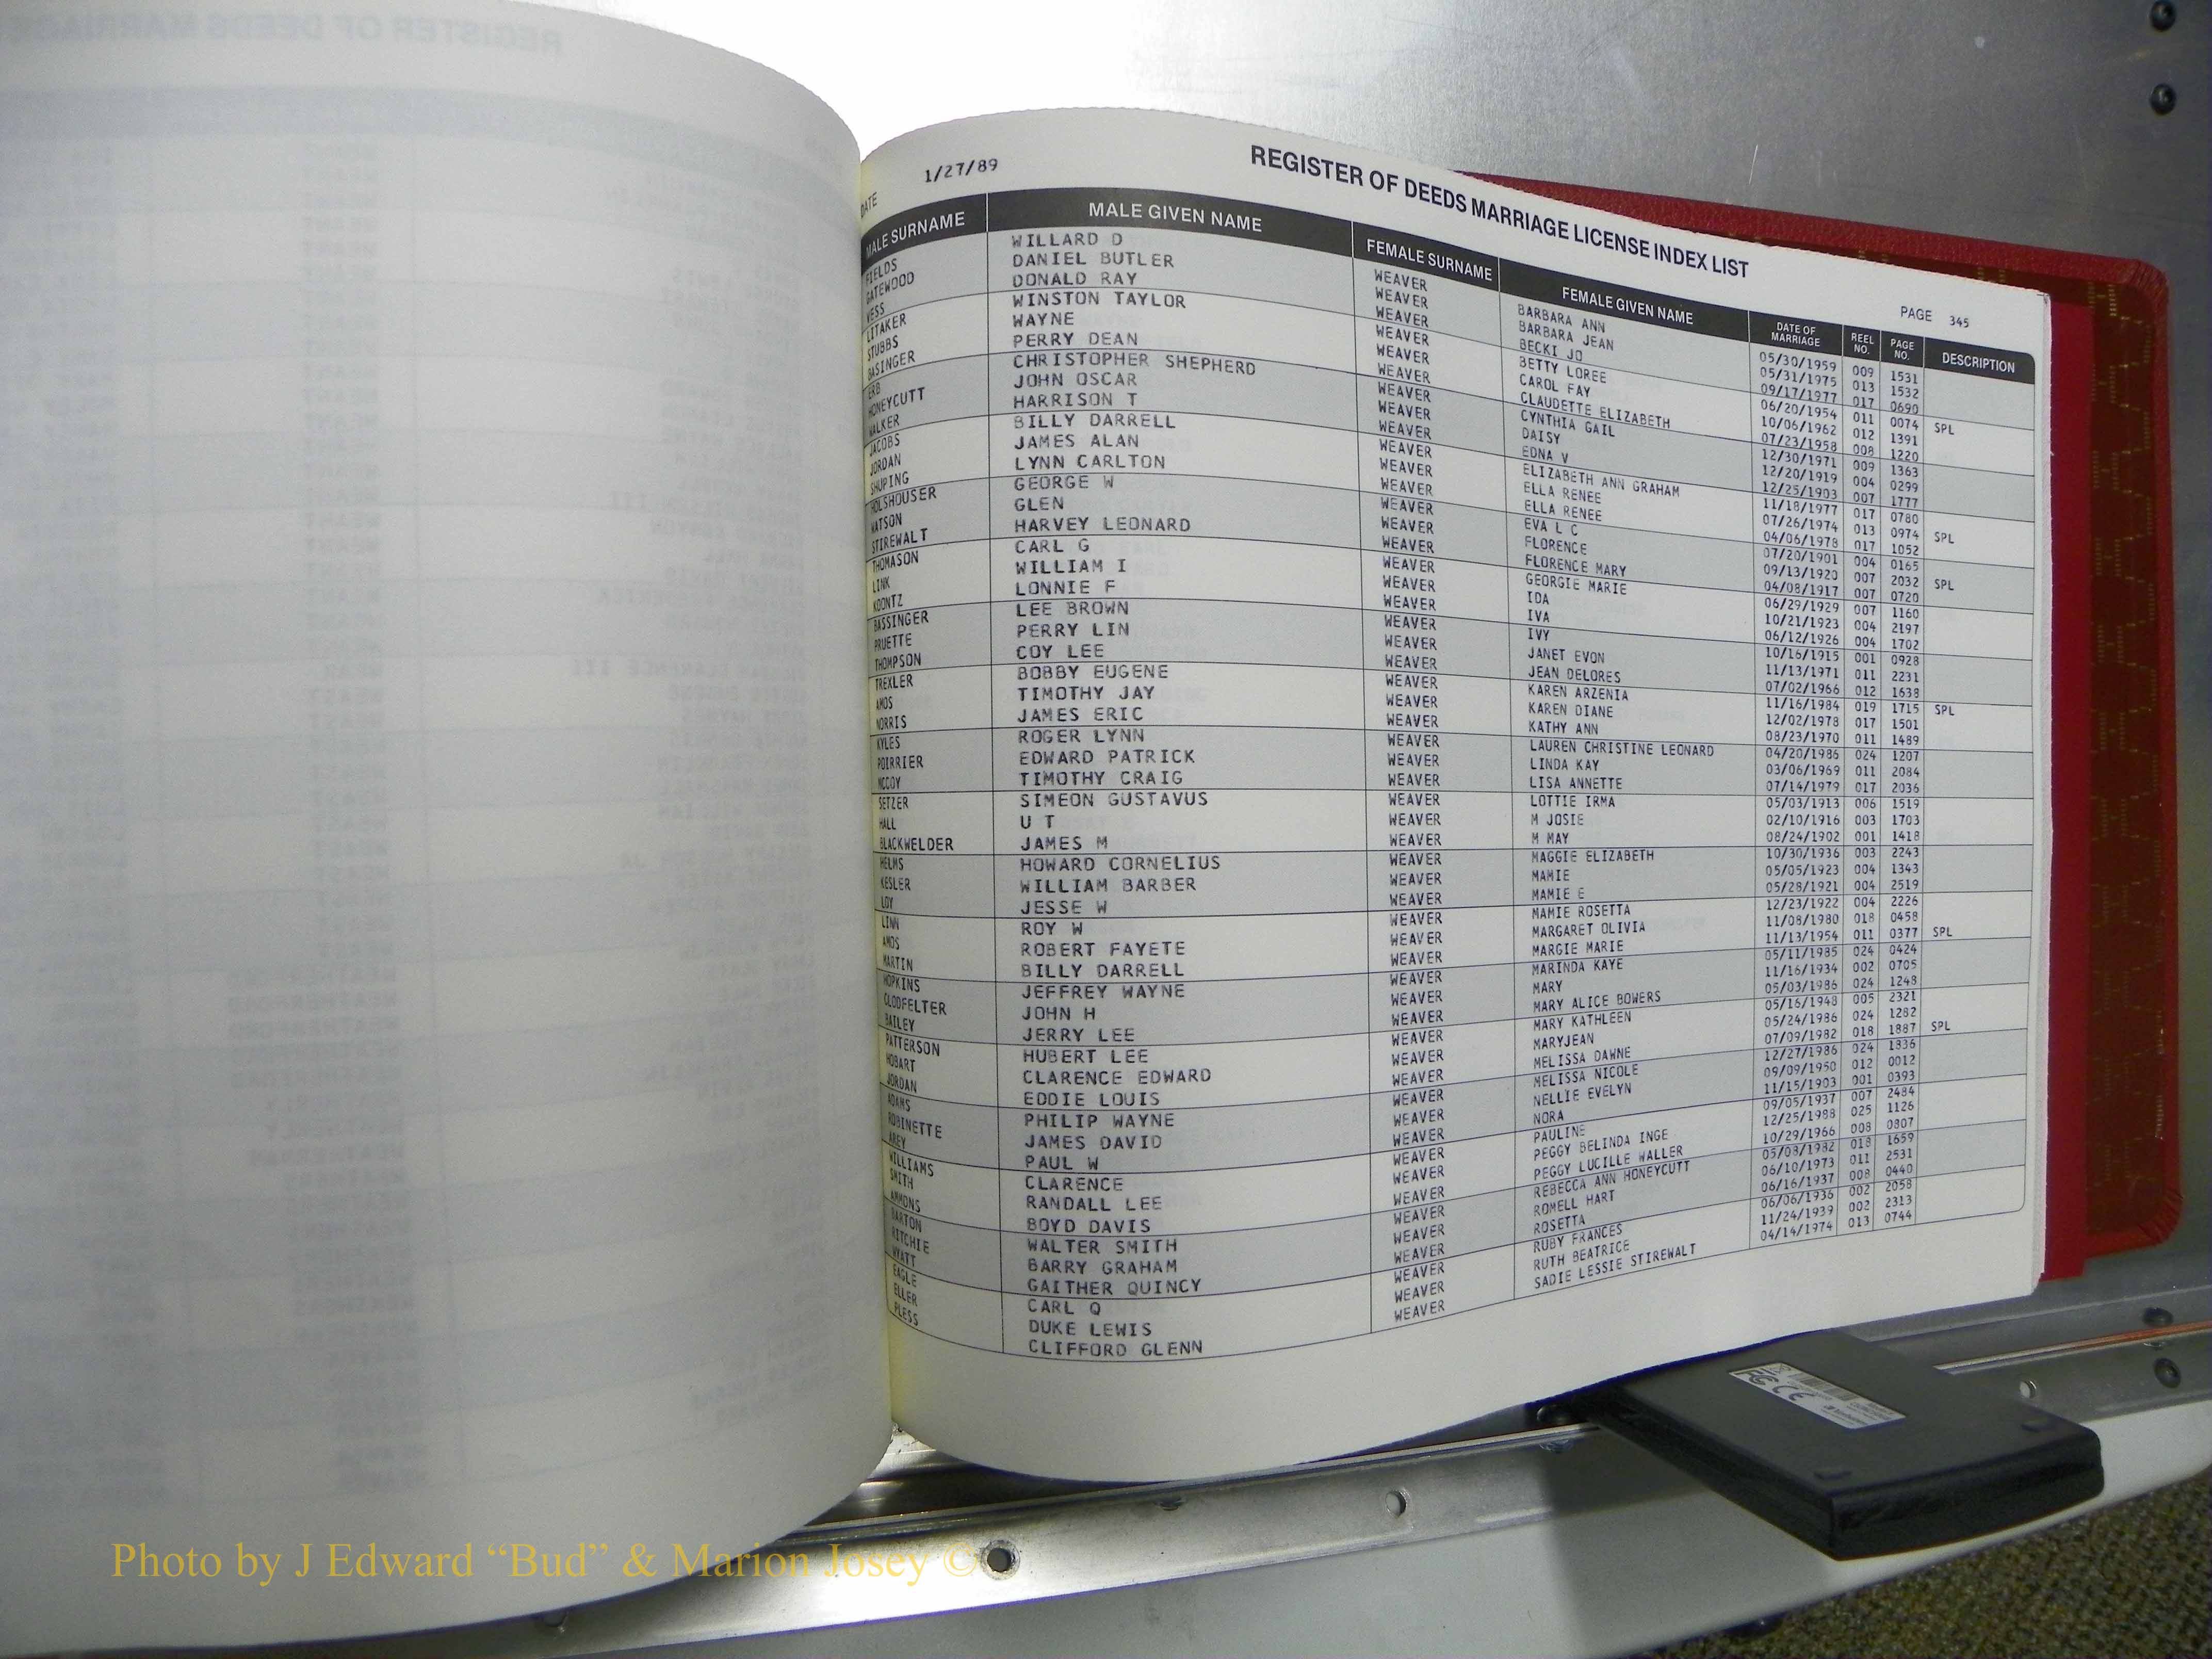 REGISTER OF DEEDS MARRIAGE LICENSE INDEX LIST
DATE 1/27/89 PAGE 345
MALE SURNAME MALE GIVEN NAME FEMALE SURNAME FEMALE GIVEN NAME DATE OF MARRIAGE REEL NO. PAGE NO. DESCRIPTION
FIELDS WILLARD D WEAVER BARBARA ANN 05/30/1959 009 1531
GATEWOOD DANIEL BUTLER WEAVER BARBARA JEAN 05/31/1975 013 1532
HESS DONALD RAY WEAVER BECKI JO 09/17/1977 017 0690
LITAKER WINSTON TAYLOR WEAVER BETTY LOREE 06/20/1954 011 0074 SPL
STUBBS WAYNE WEAVER CAROL FAY 10/06/1962 012 1391
BASINGER PERRY DEAN WEAVER CLAUDETTE ELIZABETH 07/23/1958 008 1220
ERB CHRISTOPHER SHEPHERD WEAVER CYNTHIA GAIL 12/30/1971 009 1363
HONEYCUTT JOHN OSCAR WEAVER DAISY 12/20/1919 004 0299
WALKER HARRISON T WEAVER EDNA V 12/25/1903 007 1777
JACOBS BILLY DARRELL WEAVER ELIZABETH ANN GRAHAM 11/18/1977 017 0780
JORDAN JAMES ALAN WEAVER ELLA RENEE 07/26/1974 013 0974 SPL
SHUPING LYNN CARLTON WEAVER ELLA RENEE 04/06/1978 017 1052
HOLSHOUSER GEORGE W WEAVER EVA L C 07/20/1901 004 0165
WATSON GLEN WEAVER FLORENCE 09/13/1920 007 2032 SPL
STIREWALT HARVEY LEONARD WEAVER FLORENCE MARY 04/08/1917 007 0720
THOMASON CARL G WEAVER GEORGIE MARIE 06/29/1929 007 1160
LINK WILLIAM I WEAVER IDA 10/21/1923 004 2197
KOONTZ LONNIE F WEAVER IVA 06/12/1926 004 1702
BASSINGER LEE BROWN WEAVER IVY 10/16/1915 001 0928
PRUETTE PERRY LIN WEAVER JANET EVON 11/13/1971 011 2231
THOMPSON COY LEE WEAVER JEAN DELORES 07/02/1966 012 1638
TREXLER BOBBY EUGENE WEAVER KAREN ARZENIA 11/16/1984 019 1715 SPL
AMOS TIMOTHY JAY WEAVER KAREN DIANE 12/02/1978 017 1501
NORRIS JAMES ERIC WEAVER KATHY ANN 08/23/1970 011 1489
KYLES ROGER LYNN WEAVER LAUREN CHRISTINE LEONARD 04/20/1986 024 1207
POIRRIER EDWARD PATRICK WEAVER LINDA KAY 03/06/1969 011 2084
MCCOY TIMOTHY CRAIG WEAVER LISA ANNETTE 07/14/1979 017 2036
SETZER SIMEON GUSTAVUS WEAVER LOTTIE IRMA 05/03/1913 006 1519
HALL U T WEAVER M JOSIE 02/10/1916 003 1703
BLACKWELDER JAMES M WEAVER M MAY 08/24/1902 001 1418
HELMS HOWARD CORNELIUS WEAVER MAGGIE ELIZABETH 10/30/1936 003 2243
KESLER WILLIAM BARBER WEAVER MAMIE 05/05/1923 004 1343
LOY JESSE W WEAVER MAMIE E 05/28/1921 004 2519
LINN ROY W WEAVER MAMIE ROSETTA 12/23/1922 004 2226
AMOS ROBERT FAYETE WEAVER MARGARET OLIVIA 11/08/1980 018 0458
MARTIN BILLY DARRELL WEAVER MARGIE MARIE 11/13/1954 011 0377 SPL
HOPKINS JEFFREY WAYNE WEAVER MARINDA KAYE 05/11/1985 024 0424
CLODFELTER JOHN H WEAVER MARY 11/16/1934 002 0705
BAILEY JERRY LEE WEAVER MARY ALICE BOWERS 05/03/1986 024 1248
PATTERSON HUBERT LEE WEAVER MARY KATHLEEN 05/16/1948 005 2321
HOBART CLARENCE EDWARD WEAVER MARYJEAN 05/24/1986 024 1282
JORDAN EDDIE LOUIS WEAVER MELISSA DAWNE 07/09/1982 018 1887 SPL
ADAMS PHILIP WAYNE WEAVER MELISSA NICOLE 12/27/1986 024 1836
ROBINETTE JAMES DAVID WEAVER NELLIE EVELYN 09/09/1950 012 0012
AREY PAUL W WEAVER NORA 11/15/1903 001 0393
WILLIAMS CLARENCE WEAVER PAULINE 09/05/1937 007 2484
SMITH RANDALL LEE WEAVER PEGGY BELINDA INGE 12/25/1988 025 1126
AMMONS BOYD DAVIS WEAVER PEGGY LUCILLE WALLER 10/29/1966 008 0807
BARTON WALTER SMITH WEAVER REBECCA ANN HONEYCUTT 05/08/1982 018 1659
RITCHIE BARRY GRAHAM WEAVER ROMELL HART 06/10/1973 011 2531
WYATT GAITHER QUINCY WEAVER ROSETTA 06/16/1937 008 0440
EAGLE CARL Q WEAVER RUBY FRANCES 06/06/1936 002 2058
ELLER DUKE LEWIS WEAVER RUTH BEATRICE 11/24/1939 002 2313
PLESS CLIFFORD GLENN WEAVER SADIE LESSIE STIREWALT 04/14/1974 013 0744
Photo by J Edward “Bud” & Marion Josey ©